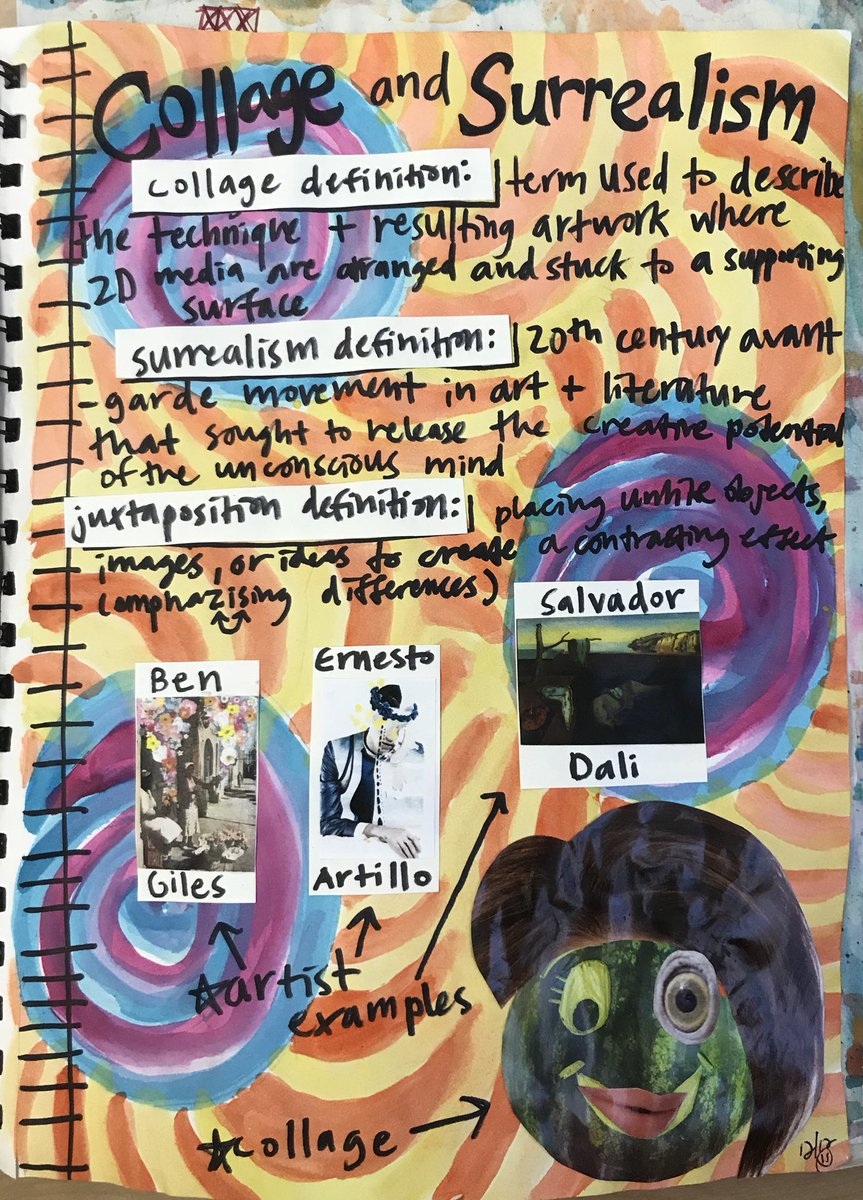 Collage and Surrealism
collage definition: term used to describe
the technique + resulting artwork where
2D media are arranged and stuck to a supporting
surface
surrealism definition: 20th century avant
-garde movement in art + literature
that sought to release the creative potential
of the unconscious mind
juxtaposition definition: placing unlike objects,
images, or ideas to create a contrasting effect
(emphazising differences)
Salvador
Dali
Ernesto
Artillo
Ben
Giles
artist
examples
collage